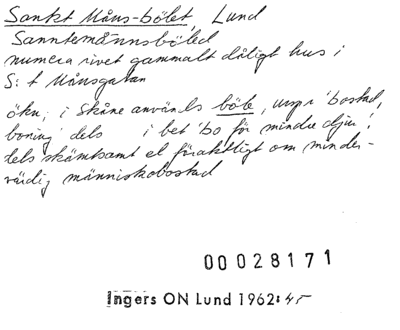 Sankt Måns-bölet, Lund
Sanntemånnsböled
numera rivet gammalt dåligt hus i
S:t Månsgatan
ökn; i Skåne används böle, urspr 'bostad,
boning' dels i bet 'bo för mindre djur',
dels skämtsamt el föraktligt om minder-
värdig människobostad
00028171
Ingers ON Lund 1962:45